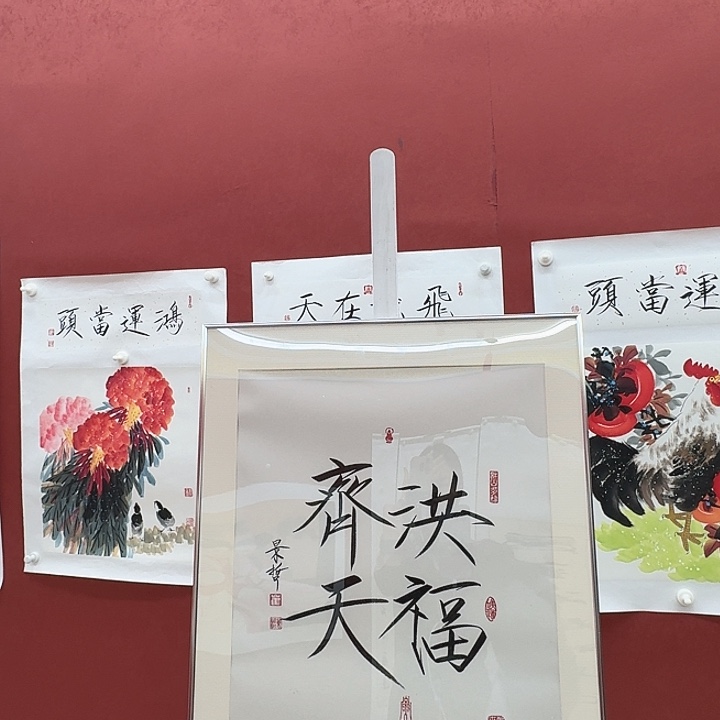 鴻運當頭
飛龍在天
頭當運
洪福
齊天
景哲